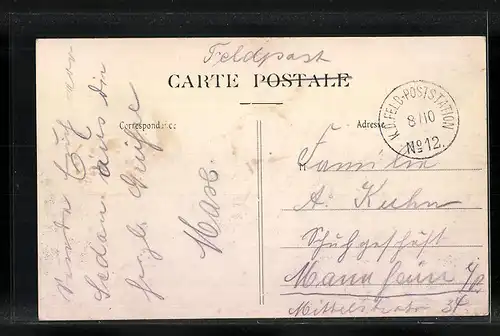 Feldpost
CARTE POSTALE
Correspondance
Adresse
K.D.FELD-POSTSTATION
8/10
Nº12.
Sedan aus die
Grüße
Max.
Familie
A. Kuhn
Schuhgeschäft
Mannheim
Mittelstraße 34.